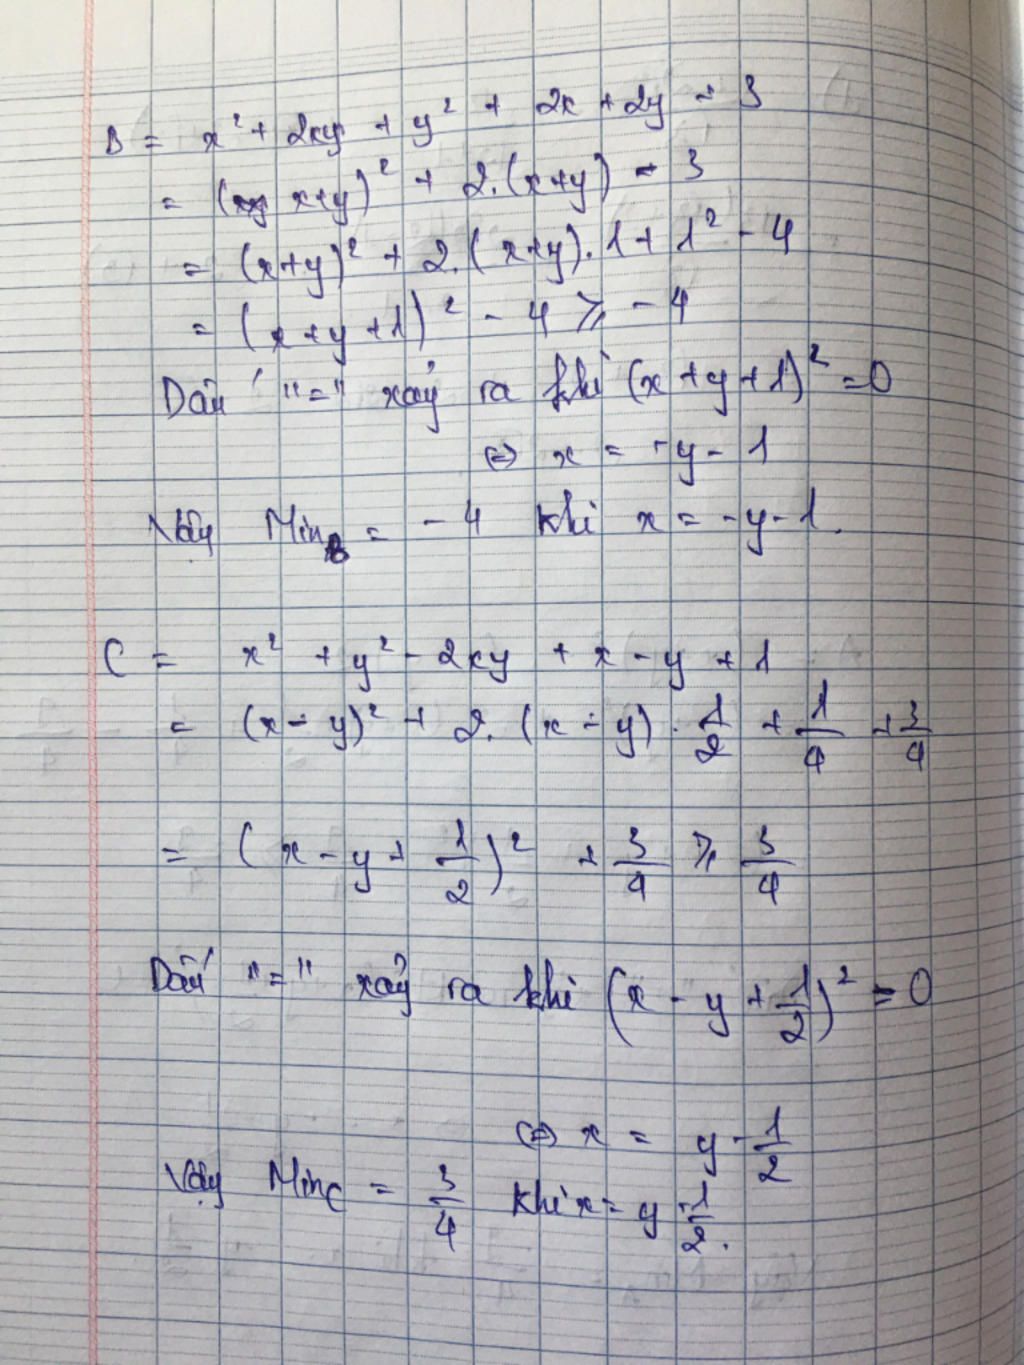 B = x² + 2xy + y² + 2x + 2y - 3
= (x+y)² + 2.(x+y) - 3
= (x+y)² + 2.(x+y).1 + 1² - 4
= (x+y+1)² - 4 ≥ -4
Dấu "=" xảy ra khi (x+y+1)² = 0
⇔ x = -y - 1
Vậy Min_B = -4 khi x = -y-1.
C = x² + y² - 2xy + x - y + 1
= (x-y)² + 2.(x-y).1/2 + 1/4 + 3/4
= (x - y + 1/2)² + 3/4 ≥ 3/4
Dấu "=" xảy ra khi (x - y + 1/2)² = 0
⇔ x = y - 1/2
Vậy Min_C = 3/4 khi x = y - 1/2.